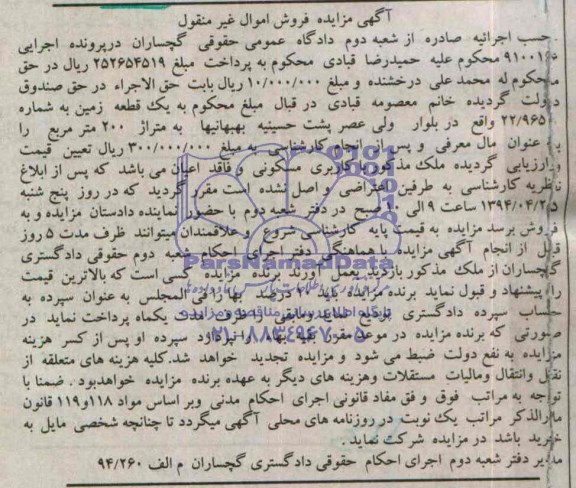 آگهی مزایده فروش اموال غیر منقول
حسب اجرائیه صادره از شعبه دوم دادگاه عمومی حقوقی گچساران درپرونده اجرایی
محکوم علیه حمیدرضا قبادی محکوم به پرداخت مبلغ ۲۵۲۶۵۴۵۱۹ ریال در حق
محکوم له محمد علی درخشنده و مبلغ ۱۰/۰۰۰/۰۰۰ ریال بابت حق الاجراء در حق صندوق
دولت گردیده خانم معصومه قبادی در قبال مبلغ محکوم به یک قطعه زمین به شماره
۲۲/۹۶۵ واقع در بلوار ولی عصر پشت حسینیه بهبهانیها به متراژ ۲۰۰ متر مربع را
به عنوان مال معرفی و پس از انجام کارشناسی به مبلغ ۳۰۰/۰۰۰/۰۰۰ ریال تعیین قیمت
وارزیابی گردیده ملک مذکور با کاربری مسکونی و فاقد اعیان می باشد که پس از ابلاغ
نظریه کارشناسی به طرفین اعتراضی واصل نشده است مقرر گردید که در روز پنج شنبه
۱۳۹۴/۰۴/۲۵ ساعت ۹ الی ۱۰ صبح در دفتر شعبه دوم با حضور نماینده دادستان مزایده و به
فروش برسد مزایده به قیمت پایه کارشناسی شروع و علاقمندان میتوانند ظرف مدت ۵ روز
قبل از انجام آگهی مزایده با هماهنگی دفتر اجرای احکام شعبه دوم حقوقی دادگستری
گچساران از ملک مذکور بازدید بعمل آورند برنده مزایده کسی است که بالاترین قیمت
را پیشنهاد و قبول نماید برنده مزایده باید ۱۰ درصد بها را فی المجلس به عنوان سپرده به
حساب سپرده دادگستری تودیع و مابقی را ظرف مدت یکماه پرداخت نماید در
صورتی که برنده مزایده در موعد مقرر بقیه بها را نپردازد سپرده او پس از کسر هزینه
مزایده به نفع دولت ضبط می شود و مزایده تجدید خواهد شد.کلیه هزینه های متعلقه از
نقل وانتقال ومالیات مستقلات وهزینه های دیگر به عهده برنده مزایده خواهدبود . ضمنا با
توجه به مراتب فوق و فق مفاد قانونی اجرای احکام مدنی وبر اساس مواد ۱۱۸و۱۱۹ قانون
مارالذکر مراتب یک نوبت در روزنامه های محلی آگهی میگردد تا چنانچه شخصی مایل به
خرید باشد در مزایده شرکت نماید .
مدیر دفتر شعبه دوم اجرای احکام حقوقی دادگستری گچساران م الف ۹۴/۲۶۰
ParsNamadData
۰۲۱-۸۸۳۴۹۶۷۰-۵